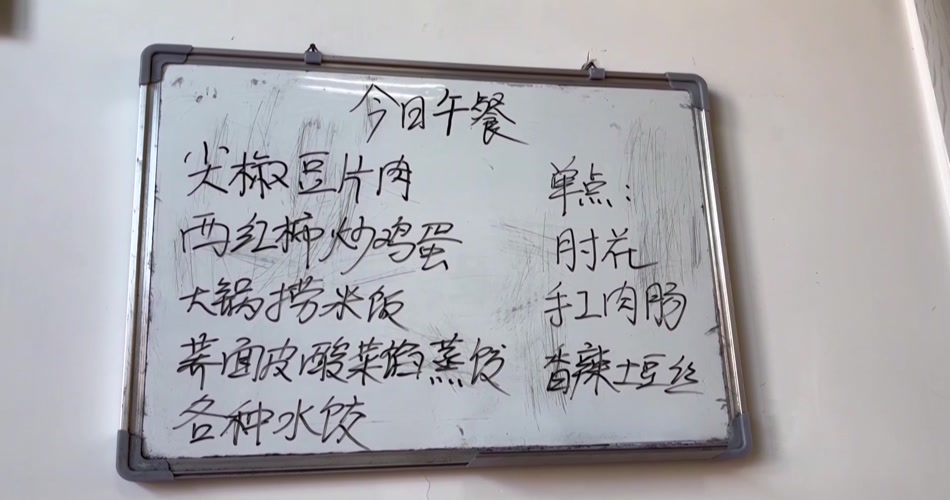 今日午餐
尖椒豆片肉
西红柿炒鸡蛋
大锅捞米饭
荞面皮酸菜馅蒸饺
各种水饺
单点:
肘花
手工肉肠
香辣土豆丝